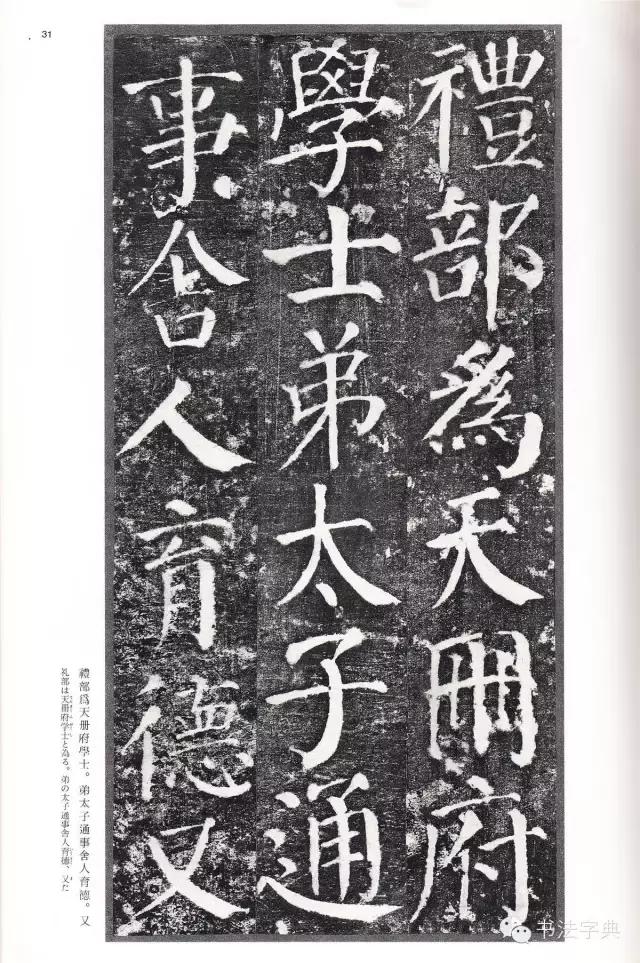 31
禮部爲天冊府
學士弟太子通
事舍人育德又
禮部爲天册府學士。弟太子通事舍人育德。又
礼部は天冊府学士と為る。弟の太子通事舍人育徳、又た
书法字典